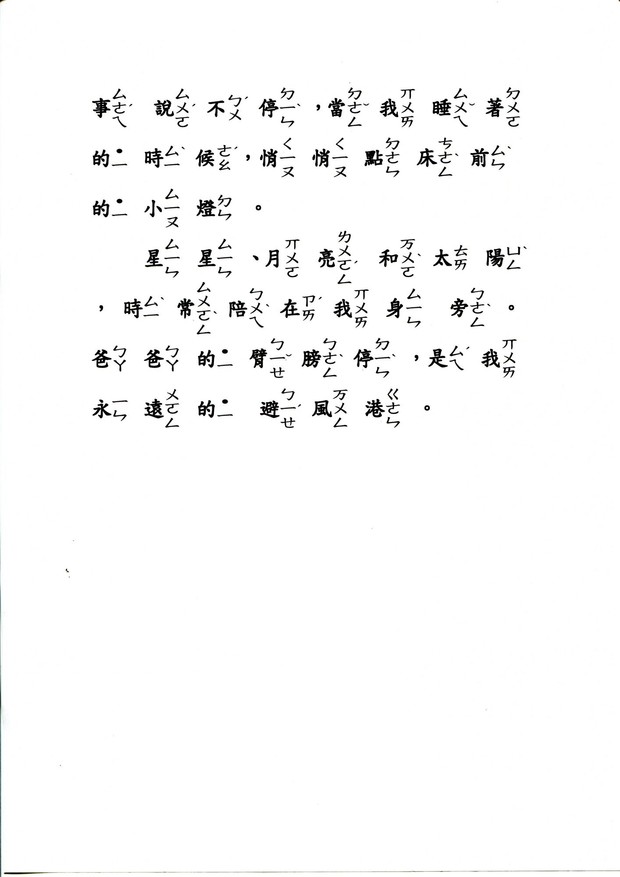 事ㄙㄜㄟˊ 說ㄙㄨㄛˊ 不ㄅㄨˊ 停ㄉㄧㄣˋ，當ㄉㄜㄥˇ 我ㄞㄨㄞ 睡ㄙㄨㄟˇ 著ㄉㄨㄛ
的˙ㄧ 時ㄙㄧˊ 候ㄜㄠˊ，悄ㄑㄧㄡ 悄ㄑㄧㄡ 點ㄉㄜㄣ 床ㄘㄜㄥˊ 前ㄙㄣˊ
的˙ㄧ 小ㄙㄧㄡ 燈ㄉㄣ 。
星ㄙㄧㄣ 星ㄙㄧㄣ 、月ㄞㄨㄛˋ 亮ㄌㄨㄛㄥˊ 和ㄞㄨㄛˋ 太ㄊㄞ 陽ㄩㄥˋ
， 時ㄙㄧˊ 常ㄙㄨㄛㄥˋ 陪ㄅㄨㄟˋ 在ㄗㄞˊ 我ㄞㄨㄞ 身ㄙㄧㄣ 旁ㄅㄜㄥˊ 。
爸ㄅㄚ 爸ㄅㄚ 的˙ㄧ 臂ㄅㄧㄝˇ 膀ㄅㄜㄥˊ 停ㄉㄧㄣˋ ，是ㄙㄟˊ 我ㄞㄨㄞ
永ㄧㄣ 遠ㄨㄛㄥ 的˙ㄧ 避ㄅㄧㄝˊ 風ㄞㄨㄥ 港ㄍㄜㄣ 。